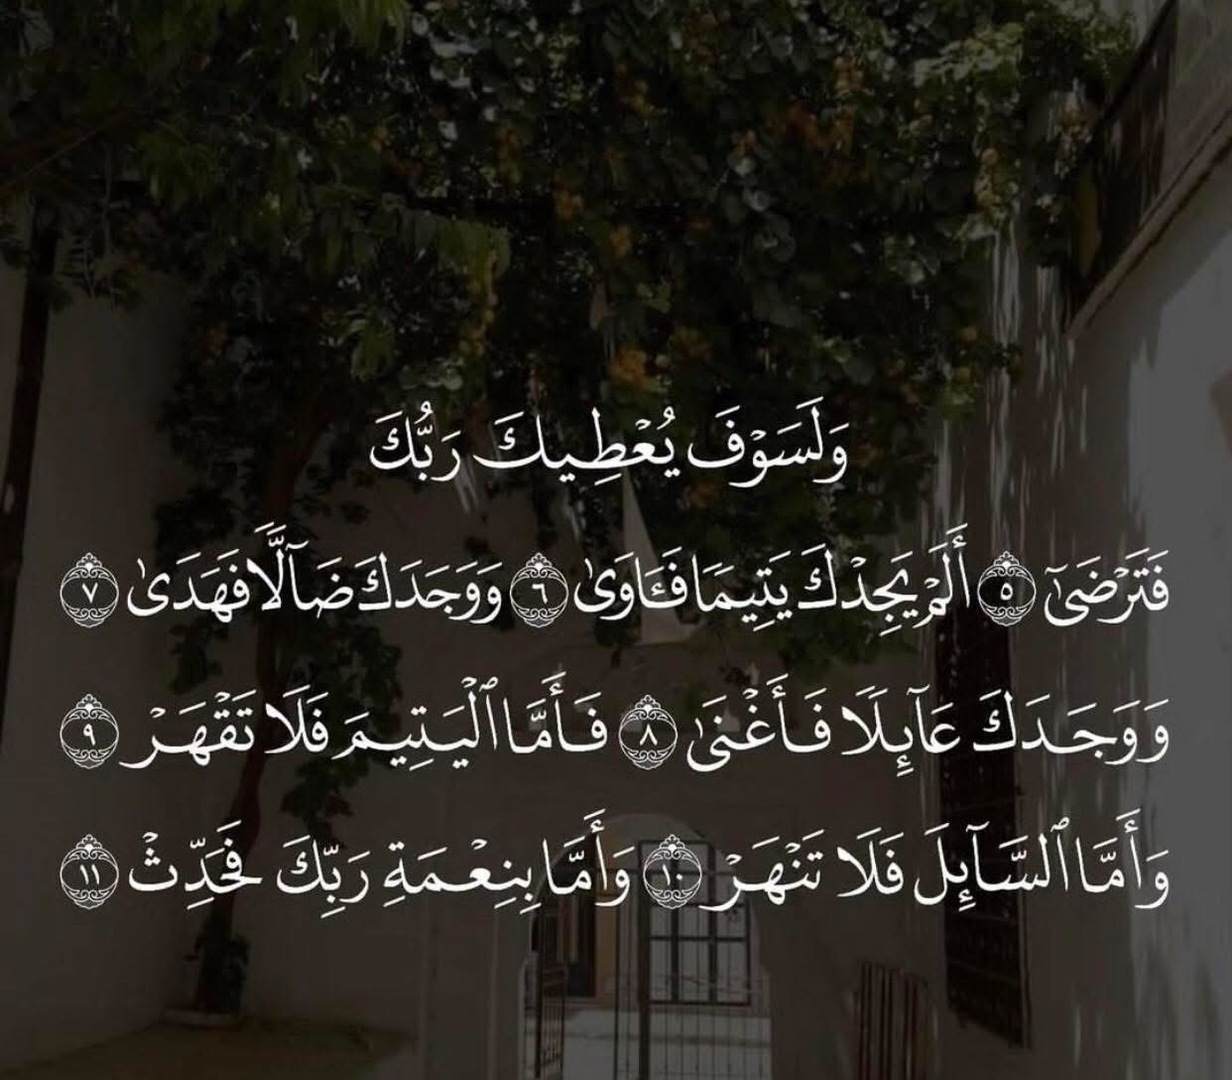 وَلَسَوْفَ يُعْطِيكَ رَبُّكَ
فَتَرْضَىٰٓ ٥ أَلَمْ يَجِدْكَ يَتِيمًا فَـَٔاوَىٰ ٦ وَوَجَدَكَ ضَآلًّا فَهَدَىٰ ٧
وَوَجَدَكَ عَآئِلًا فَأَغْنَىٰ ٨ فَأَمَّا ٱلْيَتِيمَ فَلَا تَقْهَرْ ٩
وَأَمَّا ٱلسَّآئِلَ فَلَا تَنْهَرْ ١٠ وَأَمَّا بِنِعْمَةِ رَبِّكَ فَحَدِّثْ ١١